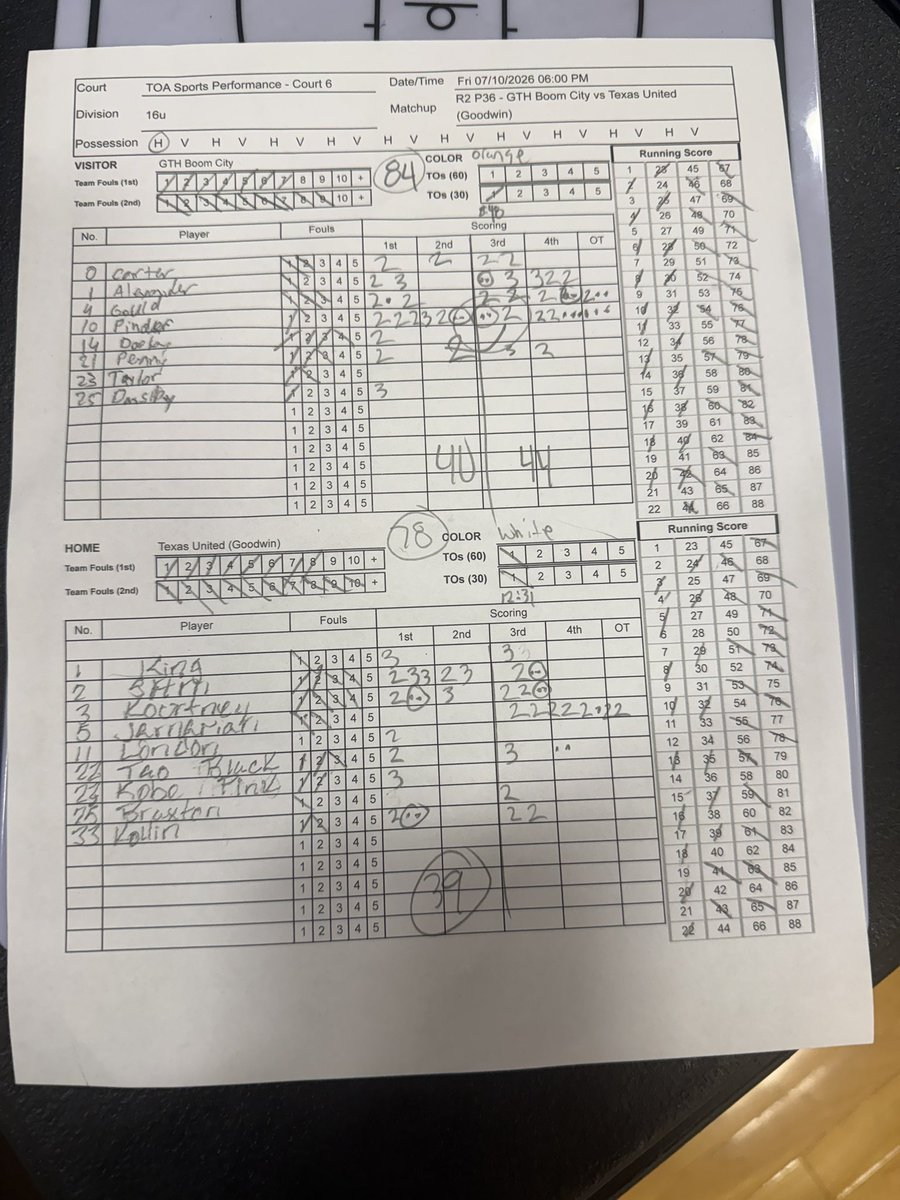 Court TOA Sports Performance - Court 6 Date/Time Fri 07/10/2026 06:00 PM
Division 16u Matchup R2 P36 - GTH Boom City vs Texas United
(Goodwin)
Possession H V H V H V H V H V H V H V H V H V H V
VISITOR GTH Boom City 84 COLOR Orange Running Score
Team Fouls (1st) 1 2 3 4 5 6 7 8 9 10 + TOs (60) 1 2 3 4 5
Team Fouls (2nd) 1 2 3 4 5 6 7 8 9 10 + TOs (30) 1 2 3 4 5
8:48
No. Player Fouls Scoring
1st 2nd 3rd 4th OT
0 Carter 1 2 3 4 5 2 2 2 2
1 Alexander 1 2 3 4 5 2 3 3 3 2 2
4 Gould 1 2 3 4 5 2 2 2 2 2 2
10 Pinder 1 2 3 4 5 2 2 2 3 2 2 2 2
14 1 2 3 4 5 2
21 Penny 1 2 3 4 5 2 2 3 2
23 Taylor 1 2 3 4 5
25 1 2 3 4 5 3
1 2 3 4 5
1 2 3 4 5
1 2 3 4 5
1 2 3 4 5
1 2 3 4 5
40 44
1 23 45 67
2 24 46 68
3 25 47 69
4 26 48 70
5 27 49 71
6 28 50 72
7 29 51 73
8 30 52 74
9 31 53 75
10 32 54 76
11 33 55 77
12 34 56 78
13 35 57 79
14 36 58 80
15 37 59 81
16 38 60 82
17 39 61 83
18 40 62 84
19 41 63 85
20 42 64 86
21 43 65 87
22 44 66 88
HOME Texas United (Goodwin) 78 COLOR White Running Score
Team Fouls (1st) 1 2 3 4 5 6 7 8 9 10 + TOs (60) 1 2 3 4 5
Team Fouls (2nd) 1 2 3 4 5 6 7 8 9 10 + TOs (30) 1 2 3 4 5
12:31
No. Player Fouls Scoring
1st 2nd 3rd 4th OT
1 King 1 2 3 4 5 3 3
2 1 2 3 4 5 2 3 3 2 3 2
3 Kourtney 1 2 3 4 5 2 3 2 2
5 1 2 3 4 5 2 2 2 2 2 2 2
11 London 1 2 3 4 5 2
22 Tao Black 1 2 3 4 5 2 3
23 Kobe Pink 1 2 3 4 5 3
25 Braxton 1 2 3 4 5 2
33 Kollin 1 2 3 4 5 2 2 2
1 2 3 4 5
1 2 3 4 5
1 2 3 4 5
1 2 3 4 5
1 2 3 4 5
39
1 23 45 67
2 24 46 68
3 25 47 69
4 26 48 70
5 27 49 71
6 28 50 72
7 29 51 73
8 30 52 74
9 31 53 75
10 32 54 76
11 33 55 77
12 34 56 78
13 35 57 79
14 36 58 80
15 37 59 81
16 38 60 82
17 39 61 83
18 40 62 84
19 41 63 85
20 42 64 86
21 43 65 87
22 44 66 88